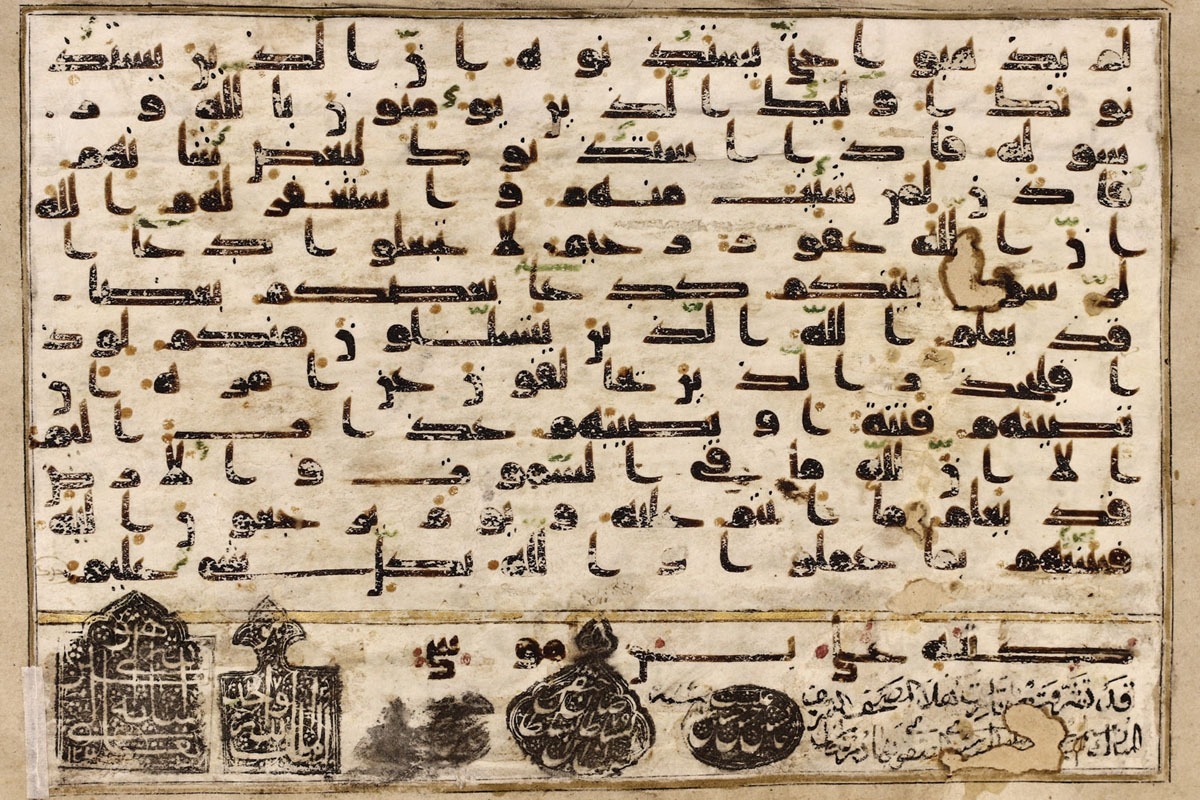 لم يذهبوا حتى يستئذنوه ان الذين يستئذ
نونك اولئك الذين يؤمنون بالله و ر
سوله فاذا استئذنوك لبعض شانهم
فاذن لمن شئت منهم و استغفر لهم الله
ان الله غفور رحيم لا تجعلوا دعا ا
لرسول بينكم كدعا بعضكم بعضا
قد يعلم الله الذين يتسللون منكم لوذ
ا فليحذر الذين يخالفون عن امره ان
تصيبهم فتنة او يصيبهم عذاب اليم
الا ان لله ما في السموت و الارض
قد يعلم ما انتم عليه و يوم يرجعون اليه
فينبئهم بما عملوا و الله بكل شي عليم
كتبه علي بن موسى
قد تشرفت بزيارت هذا المصحف الشريف